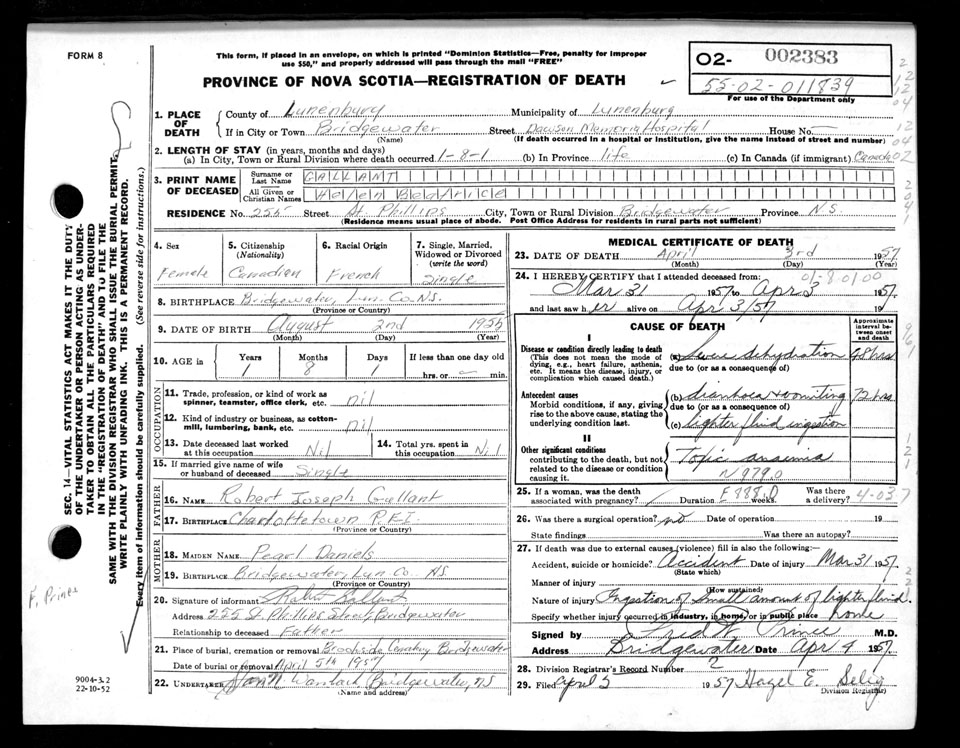 FORM 8
This form, if placed in an envelope, on which is printed "Dominion Statistics—Free, penalty for improper
use $50," and properly addressed will pass through the mail "FREE"
PROVINCE OF NOVA SCOTIA—REGISTRATION OF DEATH
02- 002383
55-02-011839
For use of the Department only
1. PLACE OF DEATH
County of Lunenburg Municipality of Lunenburg
If in City or Town Bridgewater Street Dawson Memorial Hospital House No. —
(Name) (If death occurred in a hospital or institution, give the name instead of street and number)
2. LENGTH OF STAY (in years, months and days)
(a) In City, Town or Rural Division where death occurred 1-8-1 (b) In Province life (c) In Canada (if immigrant) Canada
3. PRINT NAME OF DECEASED
Surname or Last Name GALLANT
All Given or Christian Names Helen Beatrice
RESIDENCE No. 255 Street St. Phillips City, Town or Rural Division Bridgewater Province N.S.
(Residence means usual place of abode. Post Office Address for residents in rural parts not sufficient)
4. Sex Female
5. Citizenship (Nationality) Canadian
6. Racial Origin French
7. Single, Married, Widowed or Divorced (write the word) Single
8. BIRTHPLACE Bridgewater, Lun. Co. N.S.
(Province or Country)
9. DATE OF BIRTH August 2nd 1955
(Month) (Day) (Year)
10. AGE in Years 1 Months 8 Days If less than one day old
hrs. or — min.
OCCUPATION
11. Trade, profession, or kind of work as spinner, teamster, office clerk, etc. nil
12. Kind of industry or business, as cotton-mill, lumbering, bank, etc. nil
13. Date deceased last worked at this occupation Nil
14. Total yrs. spent in this occupation Nil
15. If married give name of wife or husband of deceased Single
FATHER
16. NAME Robert Joseph Gallant
17. BIRTHPLACE Charlottetown P.E.I.
(Province or Country)
MOTHER
18. MAIDEN NAME Pearl Daniels
19. BIRTHPLACE Bridgewater, Lun Co. N.S.
(Province or Country)
20. Signature of informant Robert Gallant
Address 255 St. Phillips Street, Bridgewater
Relationship to deceased Father
21. Place of burial, cremation or removal Brookside Cemetery Bridgewater
Date of burial or removal April 5th 1957
22. UNDERTAKER Bridgewater, N.S
(Name and address)
MEDICAL CERTIFICATE OF DEATH
23. DATE OF DEATH April 3rd 1957
(Month) (Day) (Year)
24. I HEREBY CERTIFY that I attended deceased from: 01-8.01.00
Mar 31 1957 to Apr 3 1957.
and last saw h er alive on Apr 3/57 19
CAUSE OF DEATH
Approximate interval between onset and death
I
Disease or condition directly leading to death
(This does not mean the mode of dying, e.g., heart failure, asthenia, etc. It means the disease, injury, or complication which caused death.
(a) Severe dehydration 48 hrs
due to (or as a consequence of)
Antecedent causes
Morbid conditions, if any, giving rise to the above cause, stating the underlying condition last.
(b) diarrhoea & vomiting 72 hrs
due to (or as a consequence of)
(c) lighter fluid ingestion
II
Other significant conditions
contributing to the death, but not related to the disease or condition causing it.
Toxic anaemia
N979.0
25. If a woman, was the death associated with pregnancy? Duration weeks. Was there a delivery?
E888.0
4-03-7
26. Was there a surgical operation? no Date of operation 19
State findings Was there an autopsy?
27. If death was due to external causes (violence) fill in also the following:—
Accident, suicide or homicide? Accident Date of injury Mar 31 1957.
(State which)
Manner of injury
(How sustained)
Nature of injury Ingestion of small amount of lighter fluid.
Specify whether injury occurred in industry, in home, or in public place home
Signed by Prince M.D.
Address Bridgewater Date Apr 4 1957
28. Division Registrar's Record Number 2
29. Filed April 5 1957 Hazel E. Selig
Division Registrar
SEC. 14—VITAL STATISTICS ACT MAKES IT THE DUTY
OF THE UNDERTAKER OR PERSON ACTING AS UNDER-
TAKER TO OBTAIN ALL THE PARTICULARS REQUIRED
IN THE "REGISTRATION OF DEATH" AND TO FILE THE
SAME WITH THE DIVISION REGISTRAR WHO SHALL ISSUE THE BURIAL PERMIT.
WRITE PLAINLY WITH UNFADING INK. THIS IS A PERMANENT RECORD.
Every item of information should be carefully supplied. (See reverse side for instructions.)
F. Prince
9004-3.2
22-10-52